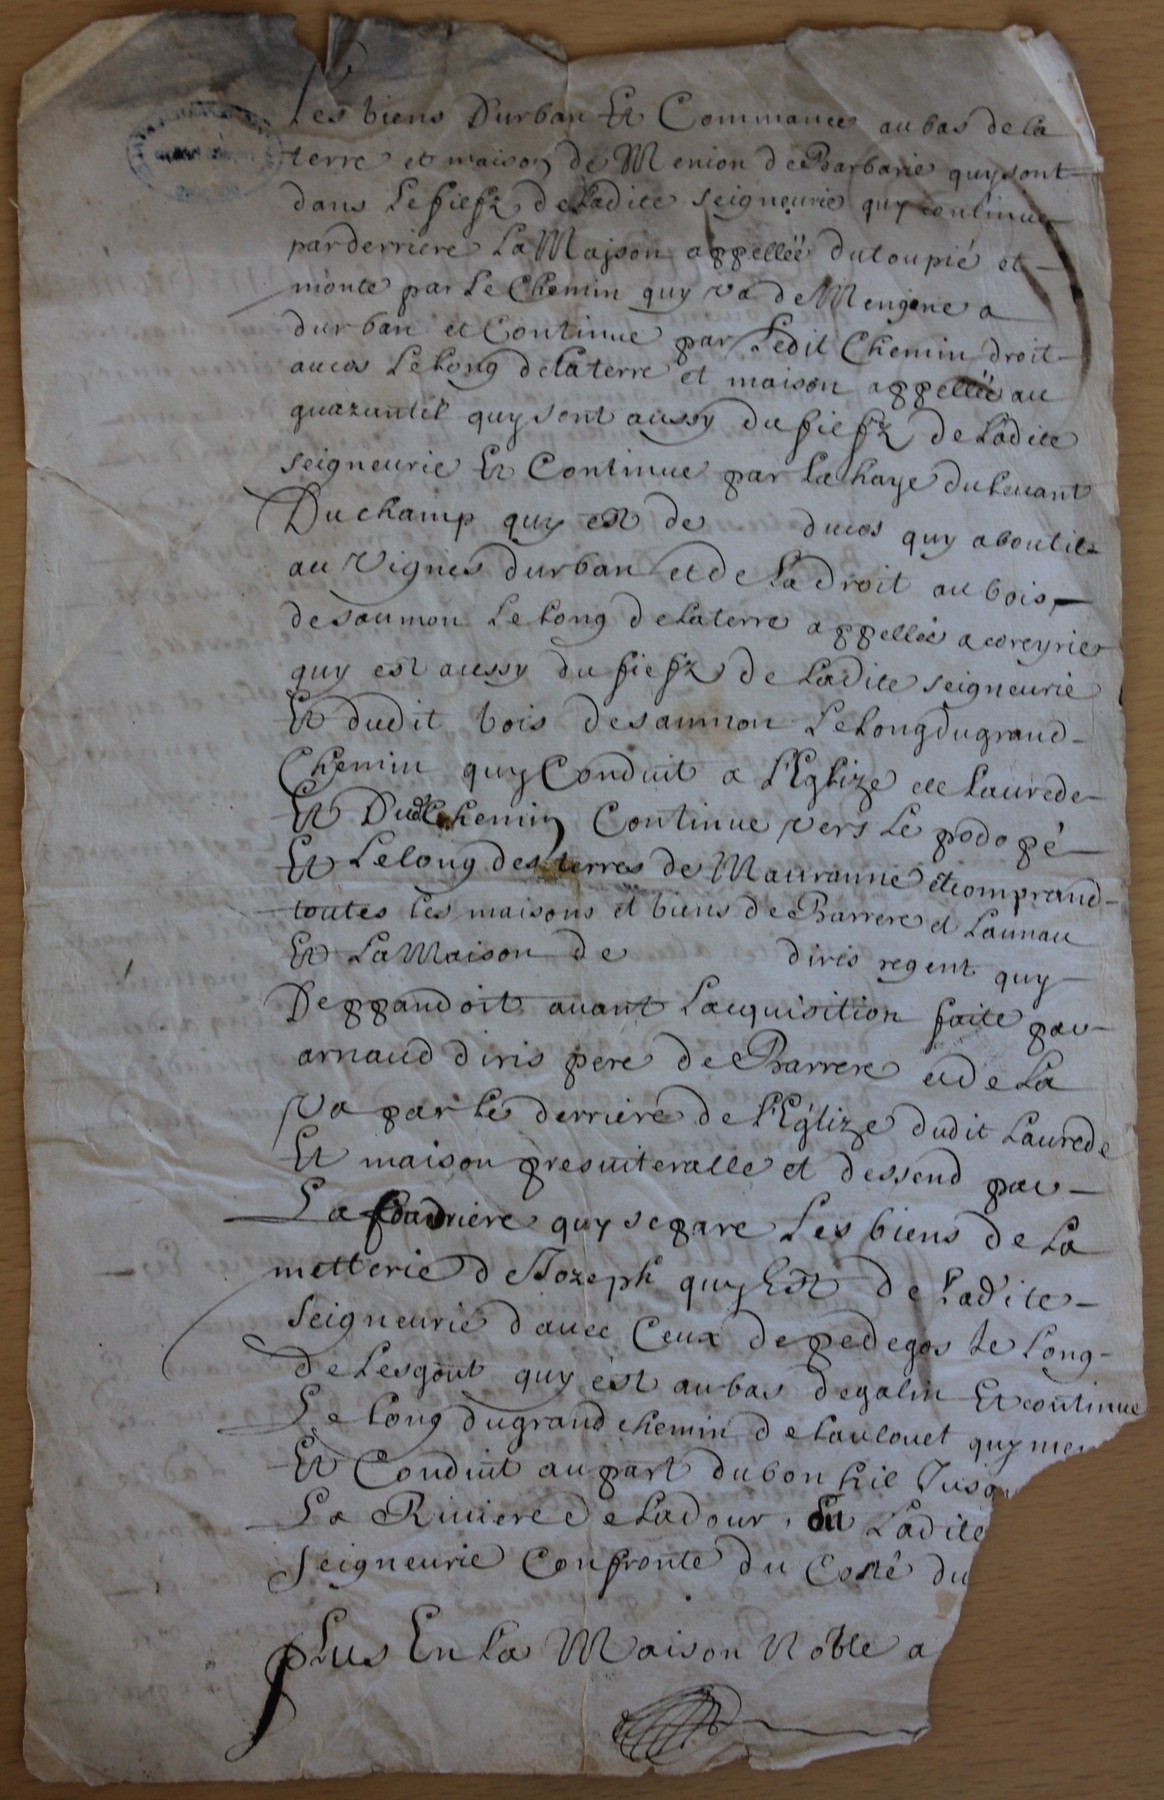 Les biens Durban Et Commance au bas de la
terre et maison de Menion de Barbarie quy sont
dans Le fiefz de Ladite seigneurie quy continue
par derriere La Maison appellée du toupié et
monte par Le Chemin quy va de Mengine a
durban et Continue par Ledit Chemin droit
au cos Le Long de La terre et maison appellée au
quazuntét quy sont aussy du fiefz de Ladite
seigneurie Et Continue par La haye du Levant
Du champ quy est de ducos quy aboutit
au Vignes durban et de La droit au bois
de saumon Le Long de La terre appellée a coreyrie
quy est aussy du fiefz de Ladite seigneurie
Et dudit bois de saumon Le Long du grand
Chemin quy Conduit a L'Eglize de Laurede
Et Dud Chemin Continue vers Le podopé
Et Le Long des terres de Mauranne et comprand
toutes les maisons et biens de Barrere et Launau
Et La Maison de diris regent quy
Deppandoit avant Lacquisition faite par
arnaud diris pere de Barrere et de La
Va par Le derriere de L'Eglize dudit Laurede
Et maison presviteralle et dessend par
La quy separe Les biens de La
metterie de Jozeph quy Est de Ladite
Seigneurie d'avec Ceux de pedegos Le Long
de Lesgout quy est au bas degalin Et continue
Le Long du grand chemin de Laulouet quy me
Et Conduit au part du bon hil Jusq
La Riviere de Ladour, Et Ladite
Seigneurie Confronte du Costé du
plus En La Maison Noble a